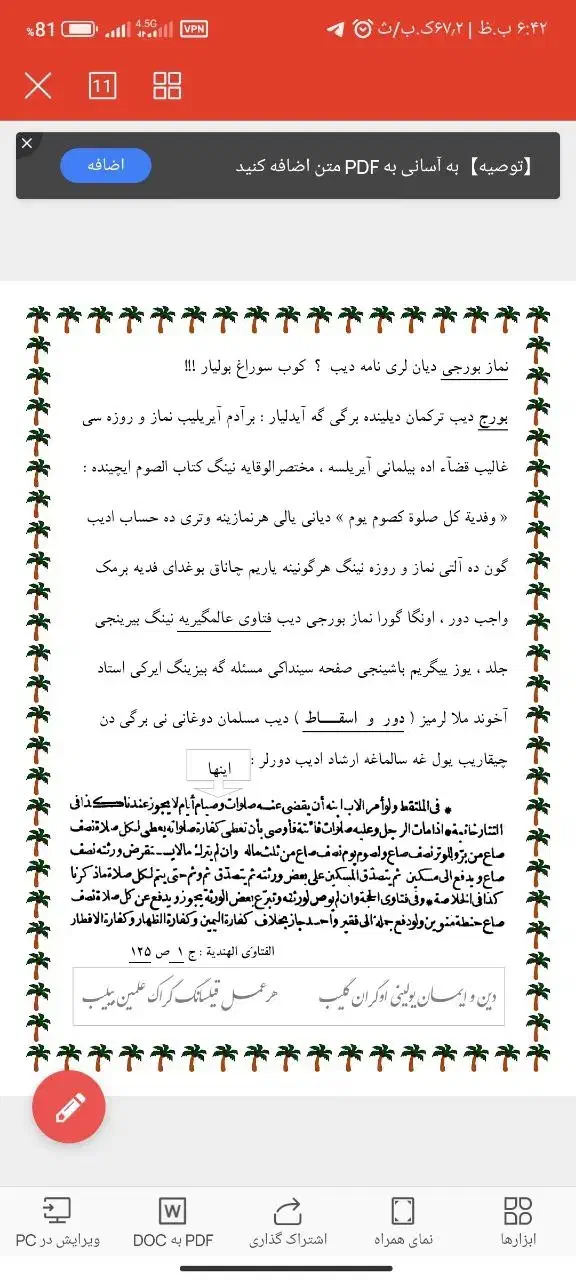 ۶:۴۲ ب.ظ | ۶۷٫۲ک.ب/ث
4.5G
VPN
%81
11
【توصیه】 به آسانی به PDF متن اضافه کنید
اضافه
نماز بورجی دیان لری نامه دیب ؟ کوب سوراغ بولیار !!!
بورج دیب ترکمان دیلینده برگی گه آیدلیار : برآدم آیریلیب نماز و روزه سی
غالیب قضآء اده بیلمانی آیریلسه ، مختصرالوقایه نینگ کتاب الصوم ایچینده :
« وفدیة کل صلوة کصوم یوم » دیانی یالی هرنمازینه وتری ده حساب ادیب
گون ده آلتی نماز و روزه نینگ هرگونینه یاریم چاناق بوغدای فدیه برمک
واجب دور ، اونگا گورا نماز بورجی دیب فتاوی عالمگیریه نینگ بیرینجی
جلد ، یوز ییگریم باشینجی صفحه سینداکی مسئله گه بیزینگ ایرکی استاد
آخوند ملا لرمیز ( دور و اسقـــاط ) دیب مسلمان دوغانی نی برگی دن
چیقاریب یول غه سالماغه ارشاد ادیب دورلر :
اینها
* فی الملتقط ولو أمر الاب ابنه أن یقضی عنه صلوات وصیام أیام لایجوز عندنا کذا فی
التتارخانیة * اذا مات الرجل وعلیه صلوات فائتة فأوصی بأن تعطی کفارة صلواته یعطی لکل صلاة نصف
صاع من بر وللوتر نصف صاع ولصوم یوم نصف صاع من ثلث ماله وان لم یترک مالا یستقرض ورثته نصف
صاع ویدفع الی مسکین ثم یتصدق المسکین علی بعض ورثته ثم یتصدق ثم وثم حتی یتم لکل صلاة ما ذکرنا
کذا فی الخلاصة * وفی فتاوی الحجة وان لم یوص لورثته وتبرع بعض الورثة یجوز ویدفع عن کل صلاة نصف
صاع حنطة منوین ولو دفع جملة الی فقیر واحد جاز بخلاف کفارة الیمین وکفارة الظهار وکفارة الافطار
الفتاوی الهندیة : ج ۱ ص ۱۲۵
دین و ایمـان یولینی اوکران کلیب هرعمـل قیلسانک کراک علمین بیلیب
ابزارها
نمای همراه
اشتراک گذاری
PDF به DOC
ویرایش در PC